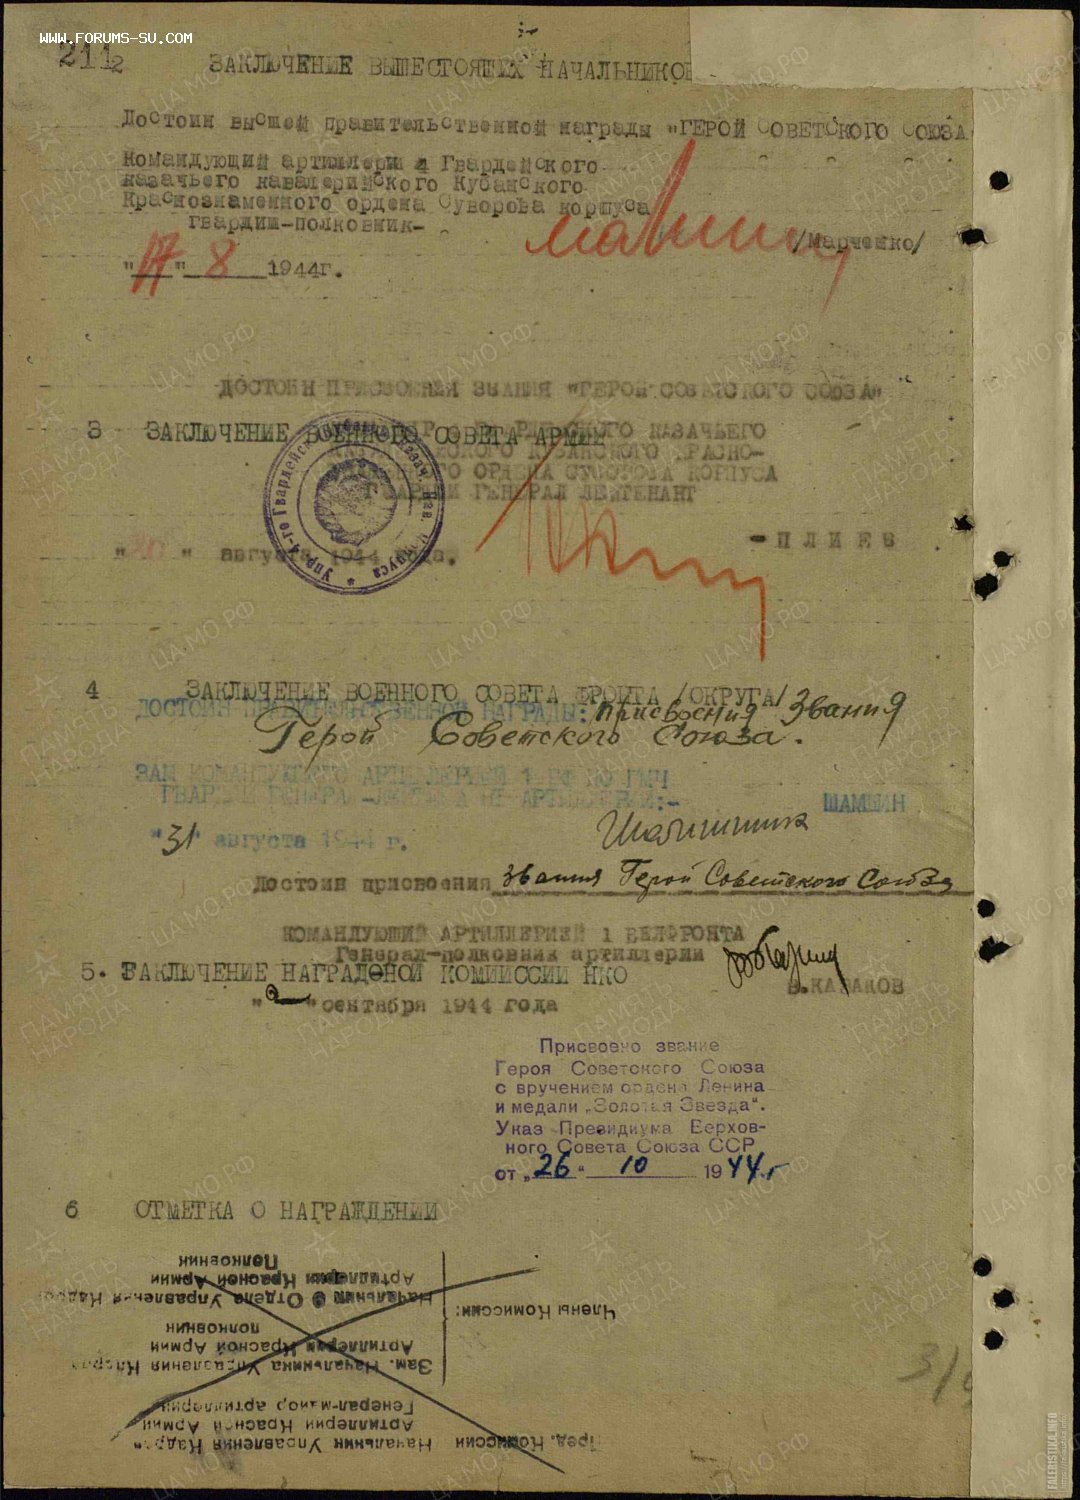 www.forums-su.com
2112
ЗАКЛЮЧЕНИЕ ВЫШЕСТОЯЩИХ НАЧАЛЬНИКОВ
Достоин высшей правительственной награды "ГЕРОЙ СОВЕТСКОГО СОЮЗА
Командующий артиллерии 4 Гвардейского
казачьего кавалерийского Кубанского
Краснознаменного ордена Суворова корпуса
гвардии-полковник-
/Марченко/
"17" 8 1944г.
ДОСТОИН ПРИСВОЕНИЯ ЗВАНИЯ "ГЕРОЙ СОВЕТСКОГО СОЮЗА"
3 ЗАКЛЮЧЕНИЕ ВОЕННОГО СОВЕТА АРМИИ
КАЗАЧЬЕГО
КУБАНСКОГО КРАСНО-
ОРДЕНА СУВОРОВА КОРПУСА
ГВАРДИИ ГЕНЕРАЛ ЛЕЙТЕНАНТ
- ПЛИЕВ
Упр. 4-го Гвардейск. Кубанск. Казач. Кав. Корпуса
" " августа 1944 года.
4 ЗАКЛЮЧЕНИЕ ВОЕННОГО СОВЕТА ФРОНТА /ОКРУГА/
ДОСТОИН ПРАВИТЕЛЬСТВЕННОЙ НАГРАДЫ: присвоения Звания
Герой Советского Союза.
ЗАМ КОМАНДУЮЩЕГО АРТИЛЛЕРИЕЙ 1 БФ ПО ГМЧ
ГВАРДИИ ГЕНЕРАЛ-ЛЕЙТЕНАНТ АРТИЛЛЕРИИ:-
ШАМШИН
"31" августа 1944 г.
Достоин присвоения звания Герой Советского Союза
КОМАНДУЮЩИЙ АРТИЛЛЕРИЕЙ 1 БЕЛФРОНТА
Генерал-полковник артиллерии
В.КАЗАКОВ
5. ЗАКЛЮЧЕНИЕ НАГРАДНОЙ КОМИССИИ НКО
"2" сентября 1944 года
Присвоено звание
Героя Советского Союза
с вручением ордена Ленина
и медали „Золотая Звезда".
Указ Президиума Верхов-
ного Совета Союза ССР
от „26" 10 1944 г
6 ОТМЕТКА О НАГРАЖДЕНИИ
Пред. Комиссии Начальник Управления Кадров
Артиллерии Красной Армии
Генерал-майор артиллерии
Зам. Начальника Управления Кадров
Артиллерии Красной Армии
полковник
Члены Комиссии:
Начальник Отдела Управления Кадров
Артиллерии Красной Армии
Полковник
ПАМЯТЬ НАРОДА
ЦА МО РФ
FALERISTIKA.INFO